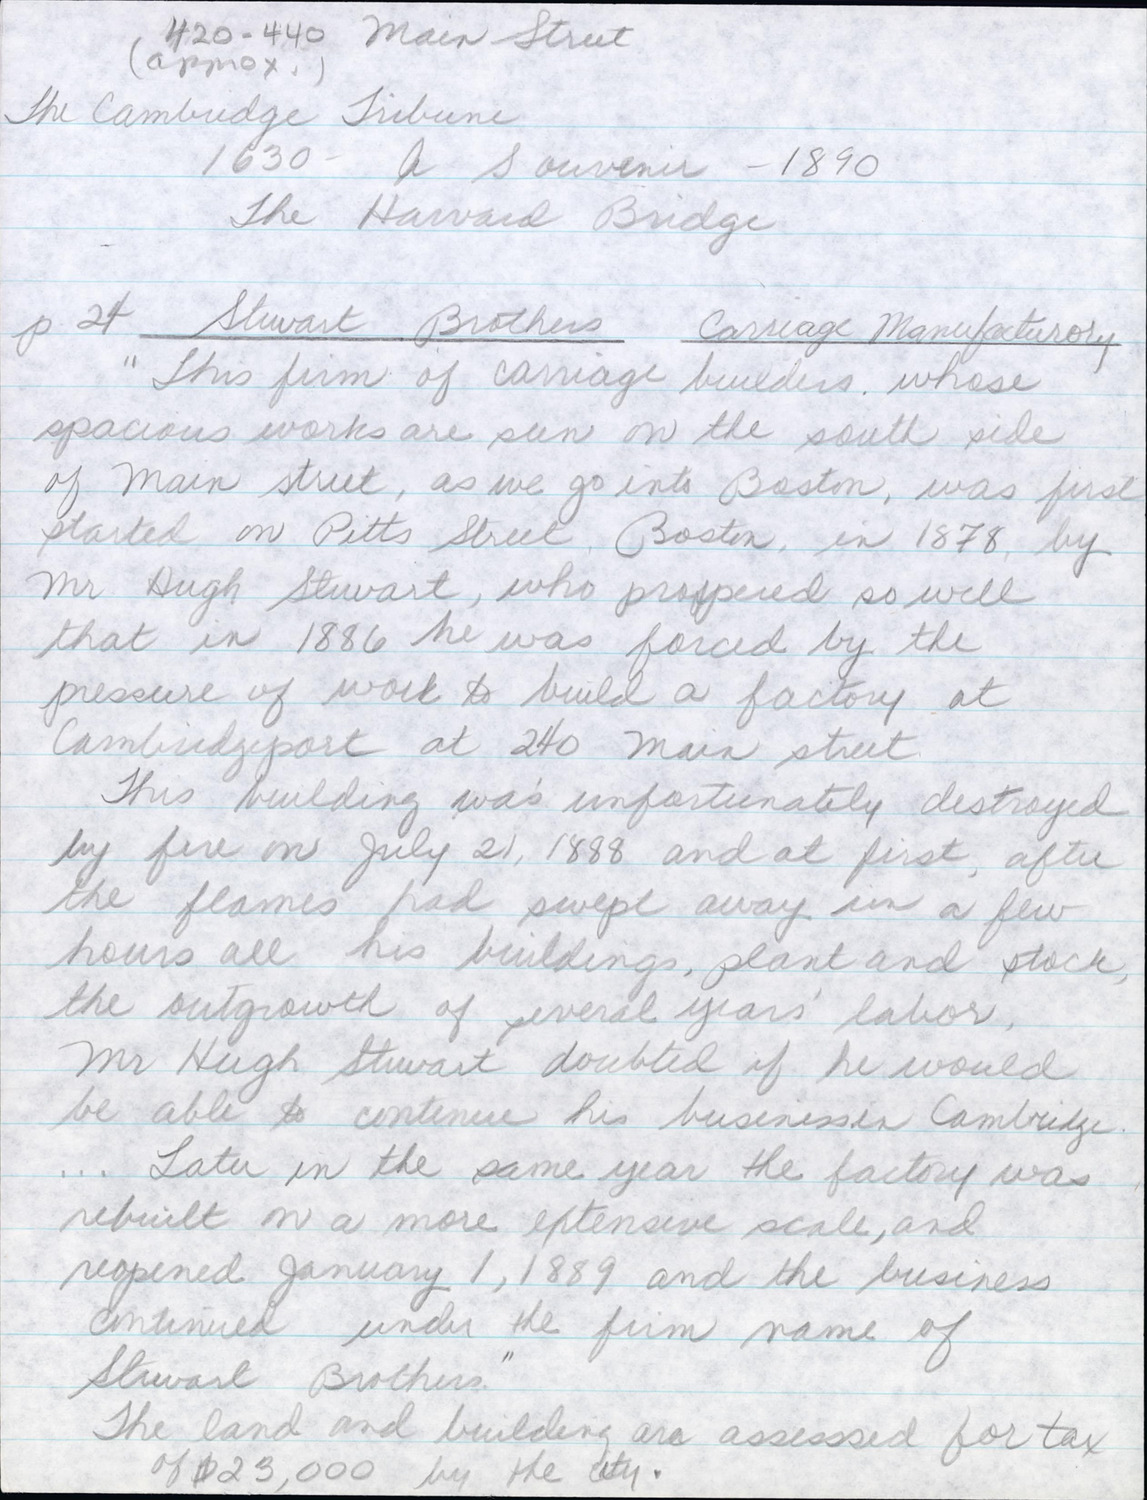 420-440 Main Street
(approx.)
The Cambridge Tribune
1630 - A Souvenir - 1890
The Harvard Bridge
p 24 Stewart Brothers Carriage Manufacturory
"This firm of carriage builders, whose
spacious works are seen on the south side
of Main street, as we go into Boston, was first
started on Pitts Street, Boston, in 1878, by
Mr Hugh Stewart, who prospered so well
that in 1886 he was forced by the
pressure of work to build a factory at
Cambridgeport at 240 Main street.
This building was unfortunately destroyed
by fire on July 21, 1888 and at first, after
the flames had swept away in a few
hours all his buildings, plant and stock,
the outgrowth of several years' labor,
Mr Hugh Stewart doubted if he would
be able to continue his business in Cambridge.
... Later in the same year the factory was
rebuilt on a more extensive scale, and
reopened January 1, 1889 and the business
continued under the firm name of
Stewart Brothers."
The land and building are assesssed for tax
of $23,000 by the city.